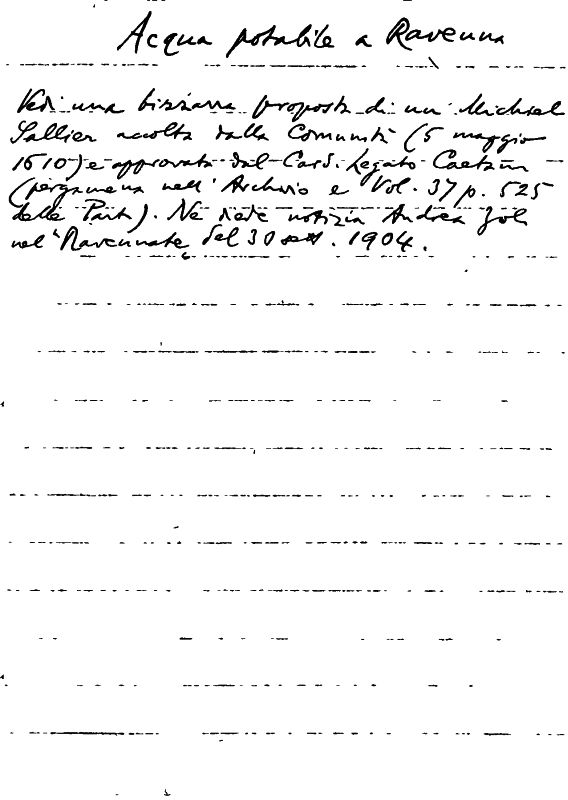 Acqua potabile a Ravenna
Vedi una bizzarra proposta di un Michiel
Sallier accolta dalla Comunità (5 maggio
1610) e approvata dal Card. Legato Caetani
(pergamena nell'Archivio e Vol. 37 p. 525
delle Part). Ne diede notizia Andrea Zoli
nel "Ravennate del 30 sett. 1904.